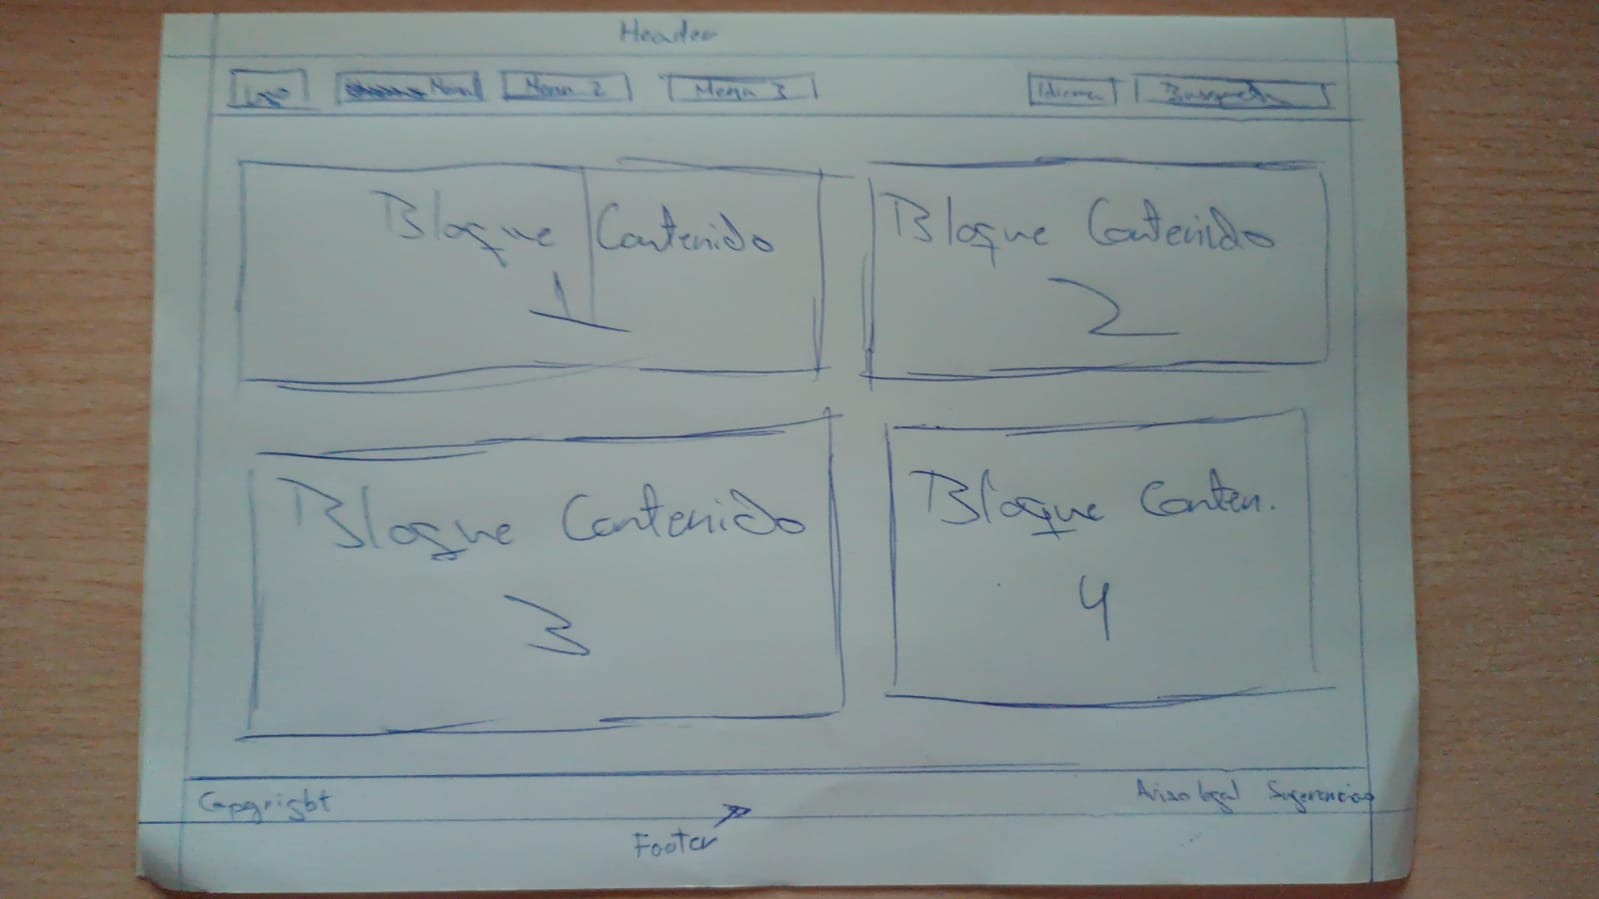 Header
Logo Menu Menu 2 Menu 3 Idioma Busqueda
Bloque Contenido
1
Bloque Contenido
2
Bloque Contenido
3
Bloque Conten.
4
Copyright Aviso legal Sugerencias
Footer